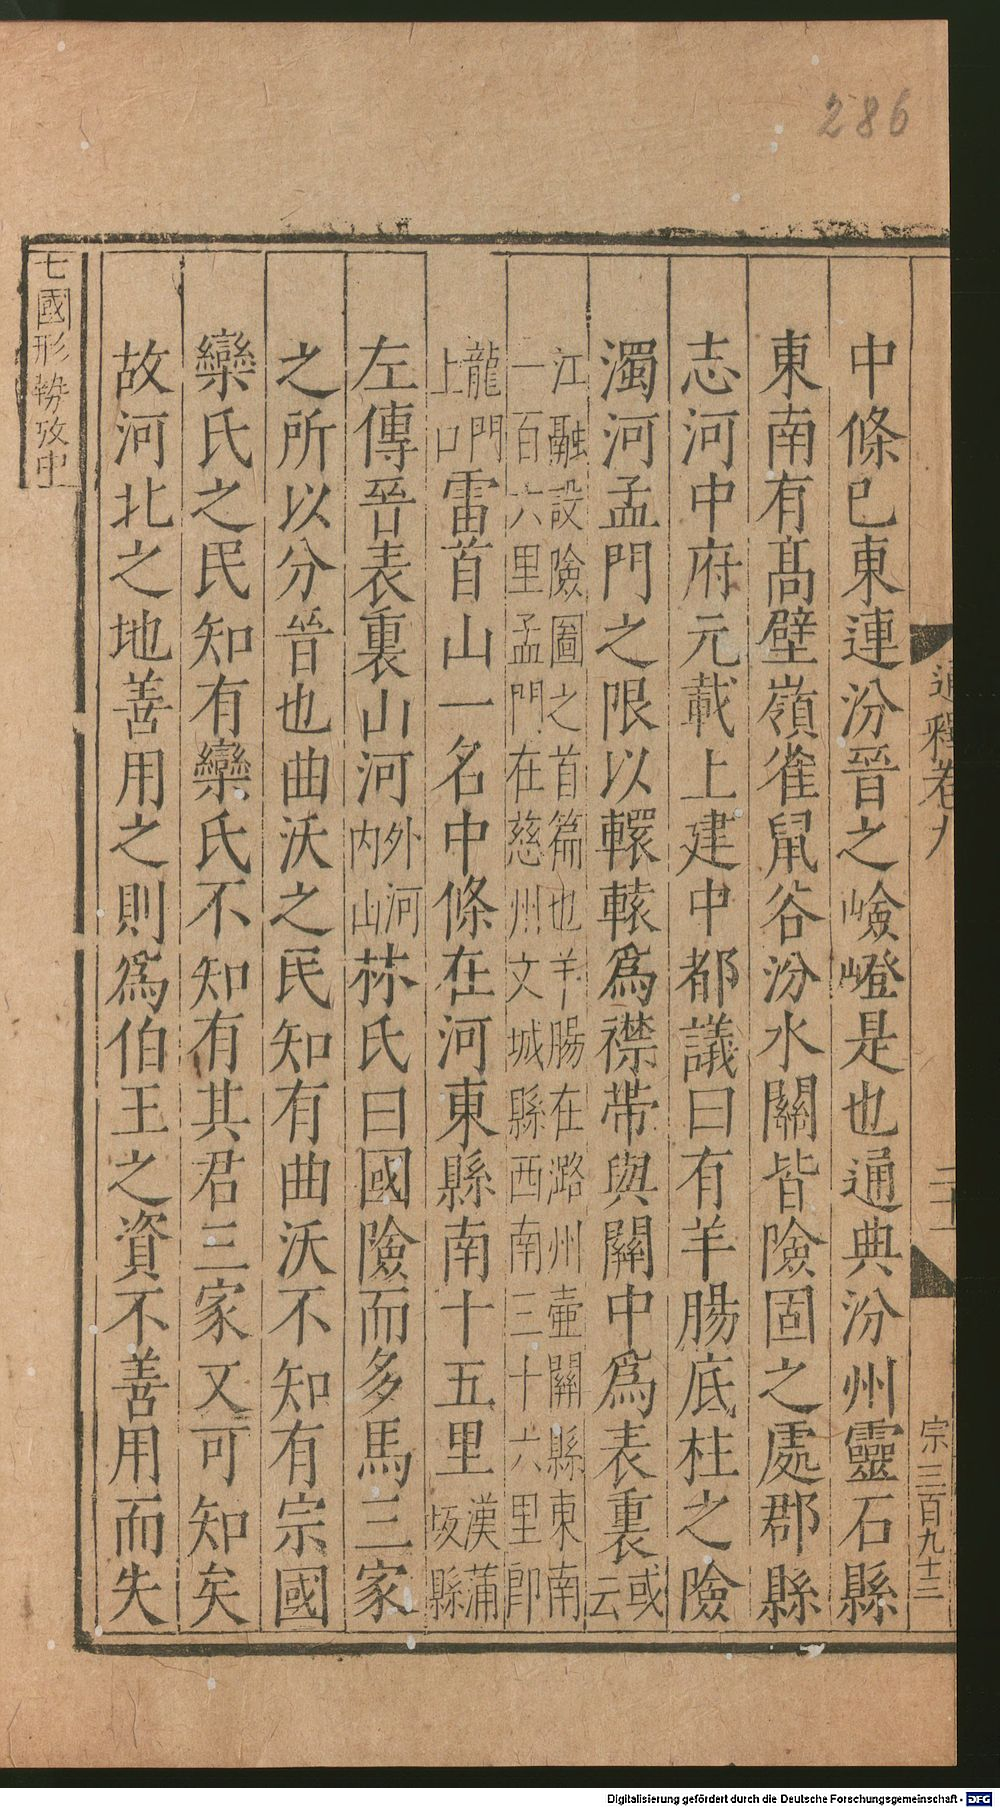 286
通釋卷九
二十一
宗三百九十三
中條已東連汾晉之嶮嶝是也通典汾州靈石縣
東南有髙壁嶺雀䑕谷汾水關皆險固之處郡縣
志河中府元載上建中都議曰有羊腸底柱之險
濁河孟門之限以轘轅爲襟帶與關中爲表裏或云
江融設險圖之首篇也羊腸在潞州壺關縣東南
一百六里孟門在慈州文城縣西南三十六里卽
龍門上口雷首山一名中條在河東縣南十五里漢蒲坂縣
左傳晉表裏山河外河内山林氏曰國險而多馬三家
之所以分晉也曲沃之民知有曲沃不知有宗國
欒氏之民知有欒氏不知有其君三家又可知矣
故河北之地善用之則爲伯王之資不善用而失
七國形勢攷中
Digitalisierung gefördert durch die Deutsche Forschungsgemeinschaft - DFG